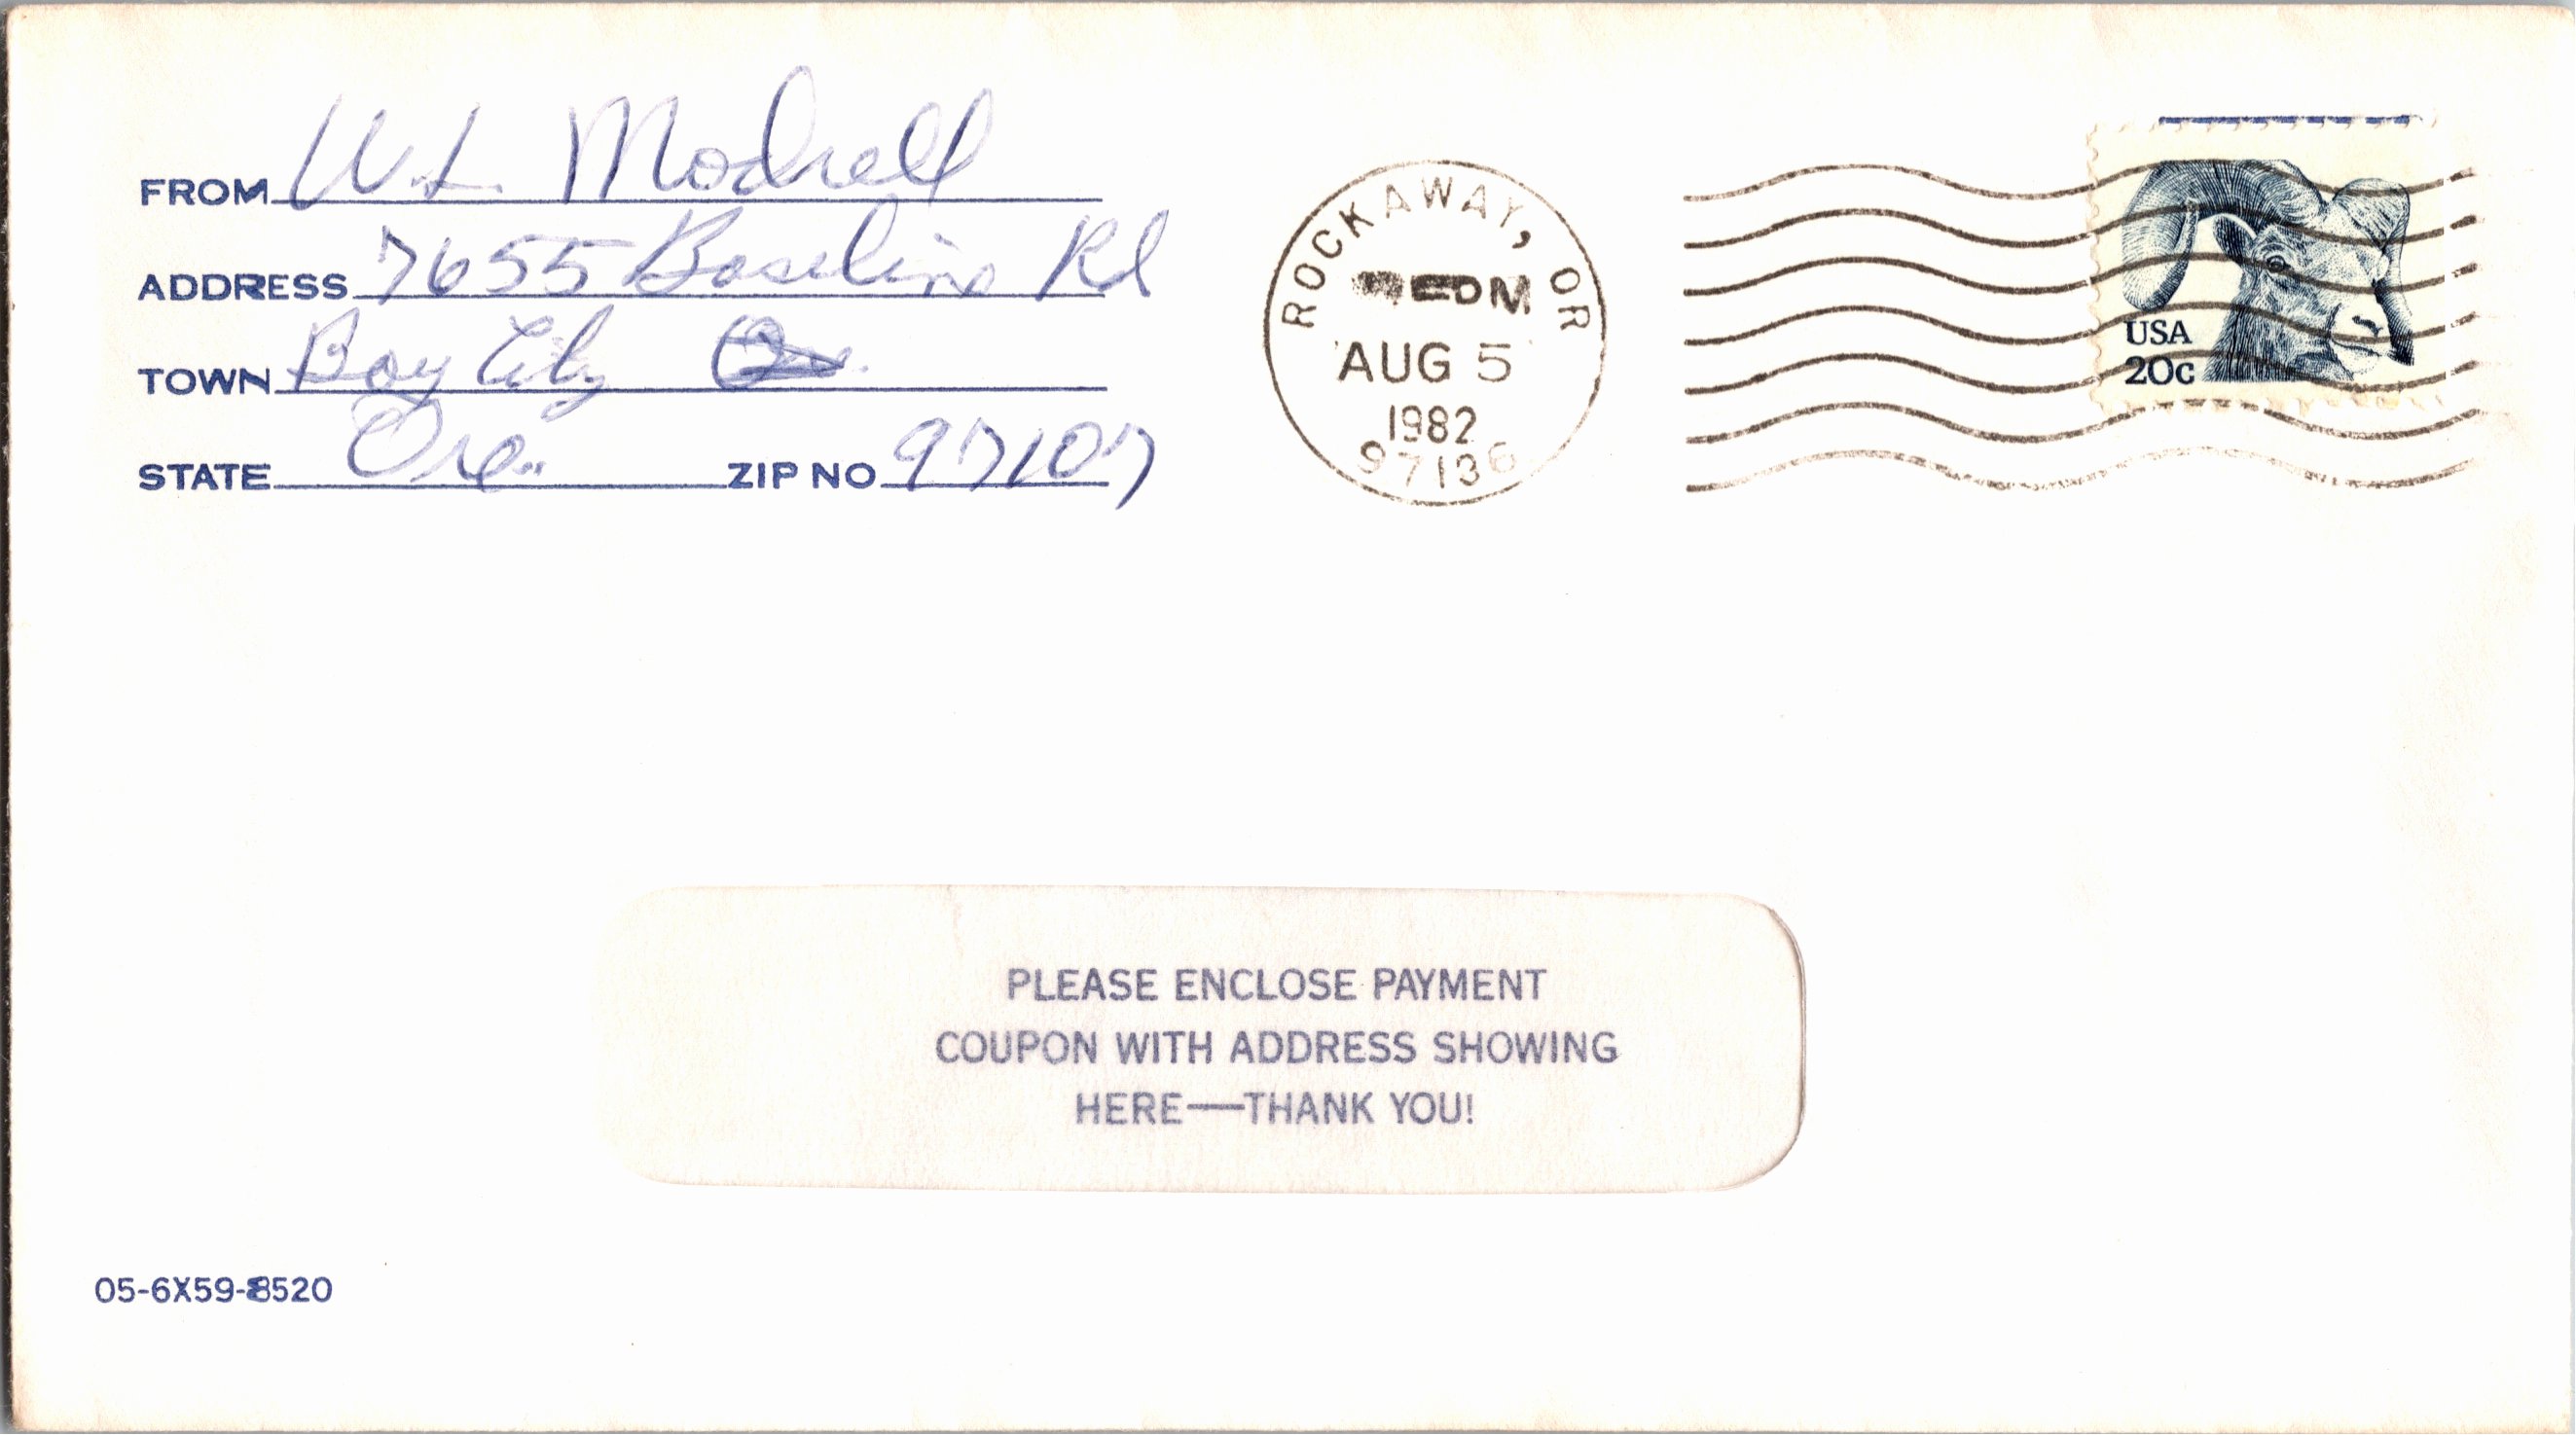 FROM W.L. Modrell
ADDRESS 7655 Baseline Rd
TOWN Bay City
STATE Ore. ZIP NO 97107
ROCKAWAY, OR
PM
AUG 5
1982
97136
USA
20c
PLEASE ENCLOSE PAYMENT
COUPON WITH ADDRESS SHOWING
HERE—THANK YOU!
05-6X59-8520